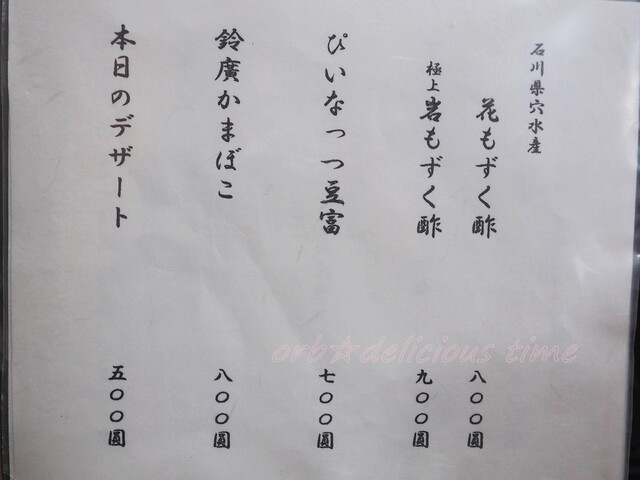 石川県穴水産
花もずく酢 八〇〇圓
極上 岩もずく酢 九〇〇圓
ぴいなっつ豆富 七〇〇圓
鈴廣かまぼこ 八〇〇圓
本日のデザート 五〇〇圓
orb☆delicious time